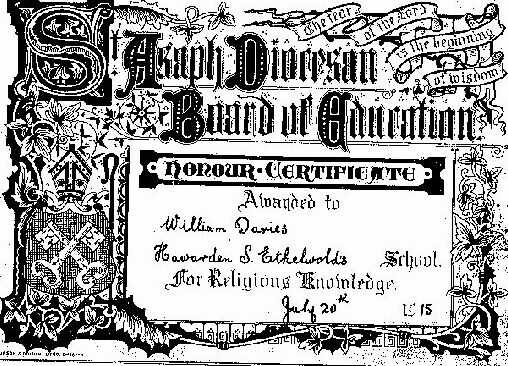 The fear
of the Lord
is the beginning
of wisdom
St Asaph Diocesan
Board of Education.
HONOUR · CERTIFICATE
Awarded to
William Davies
Hawarden S. Ethelwolds School.
For Religious Knowledge.
July 20th 1915